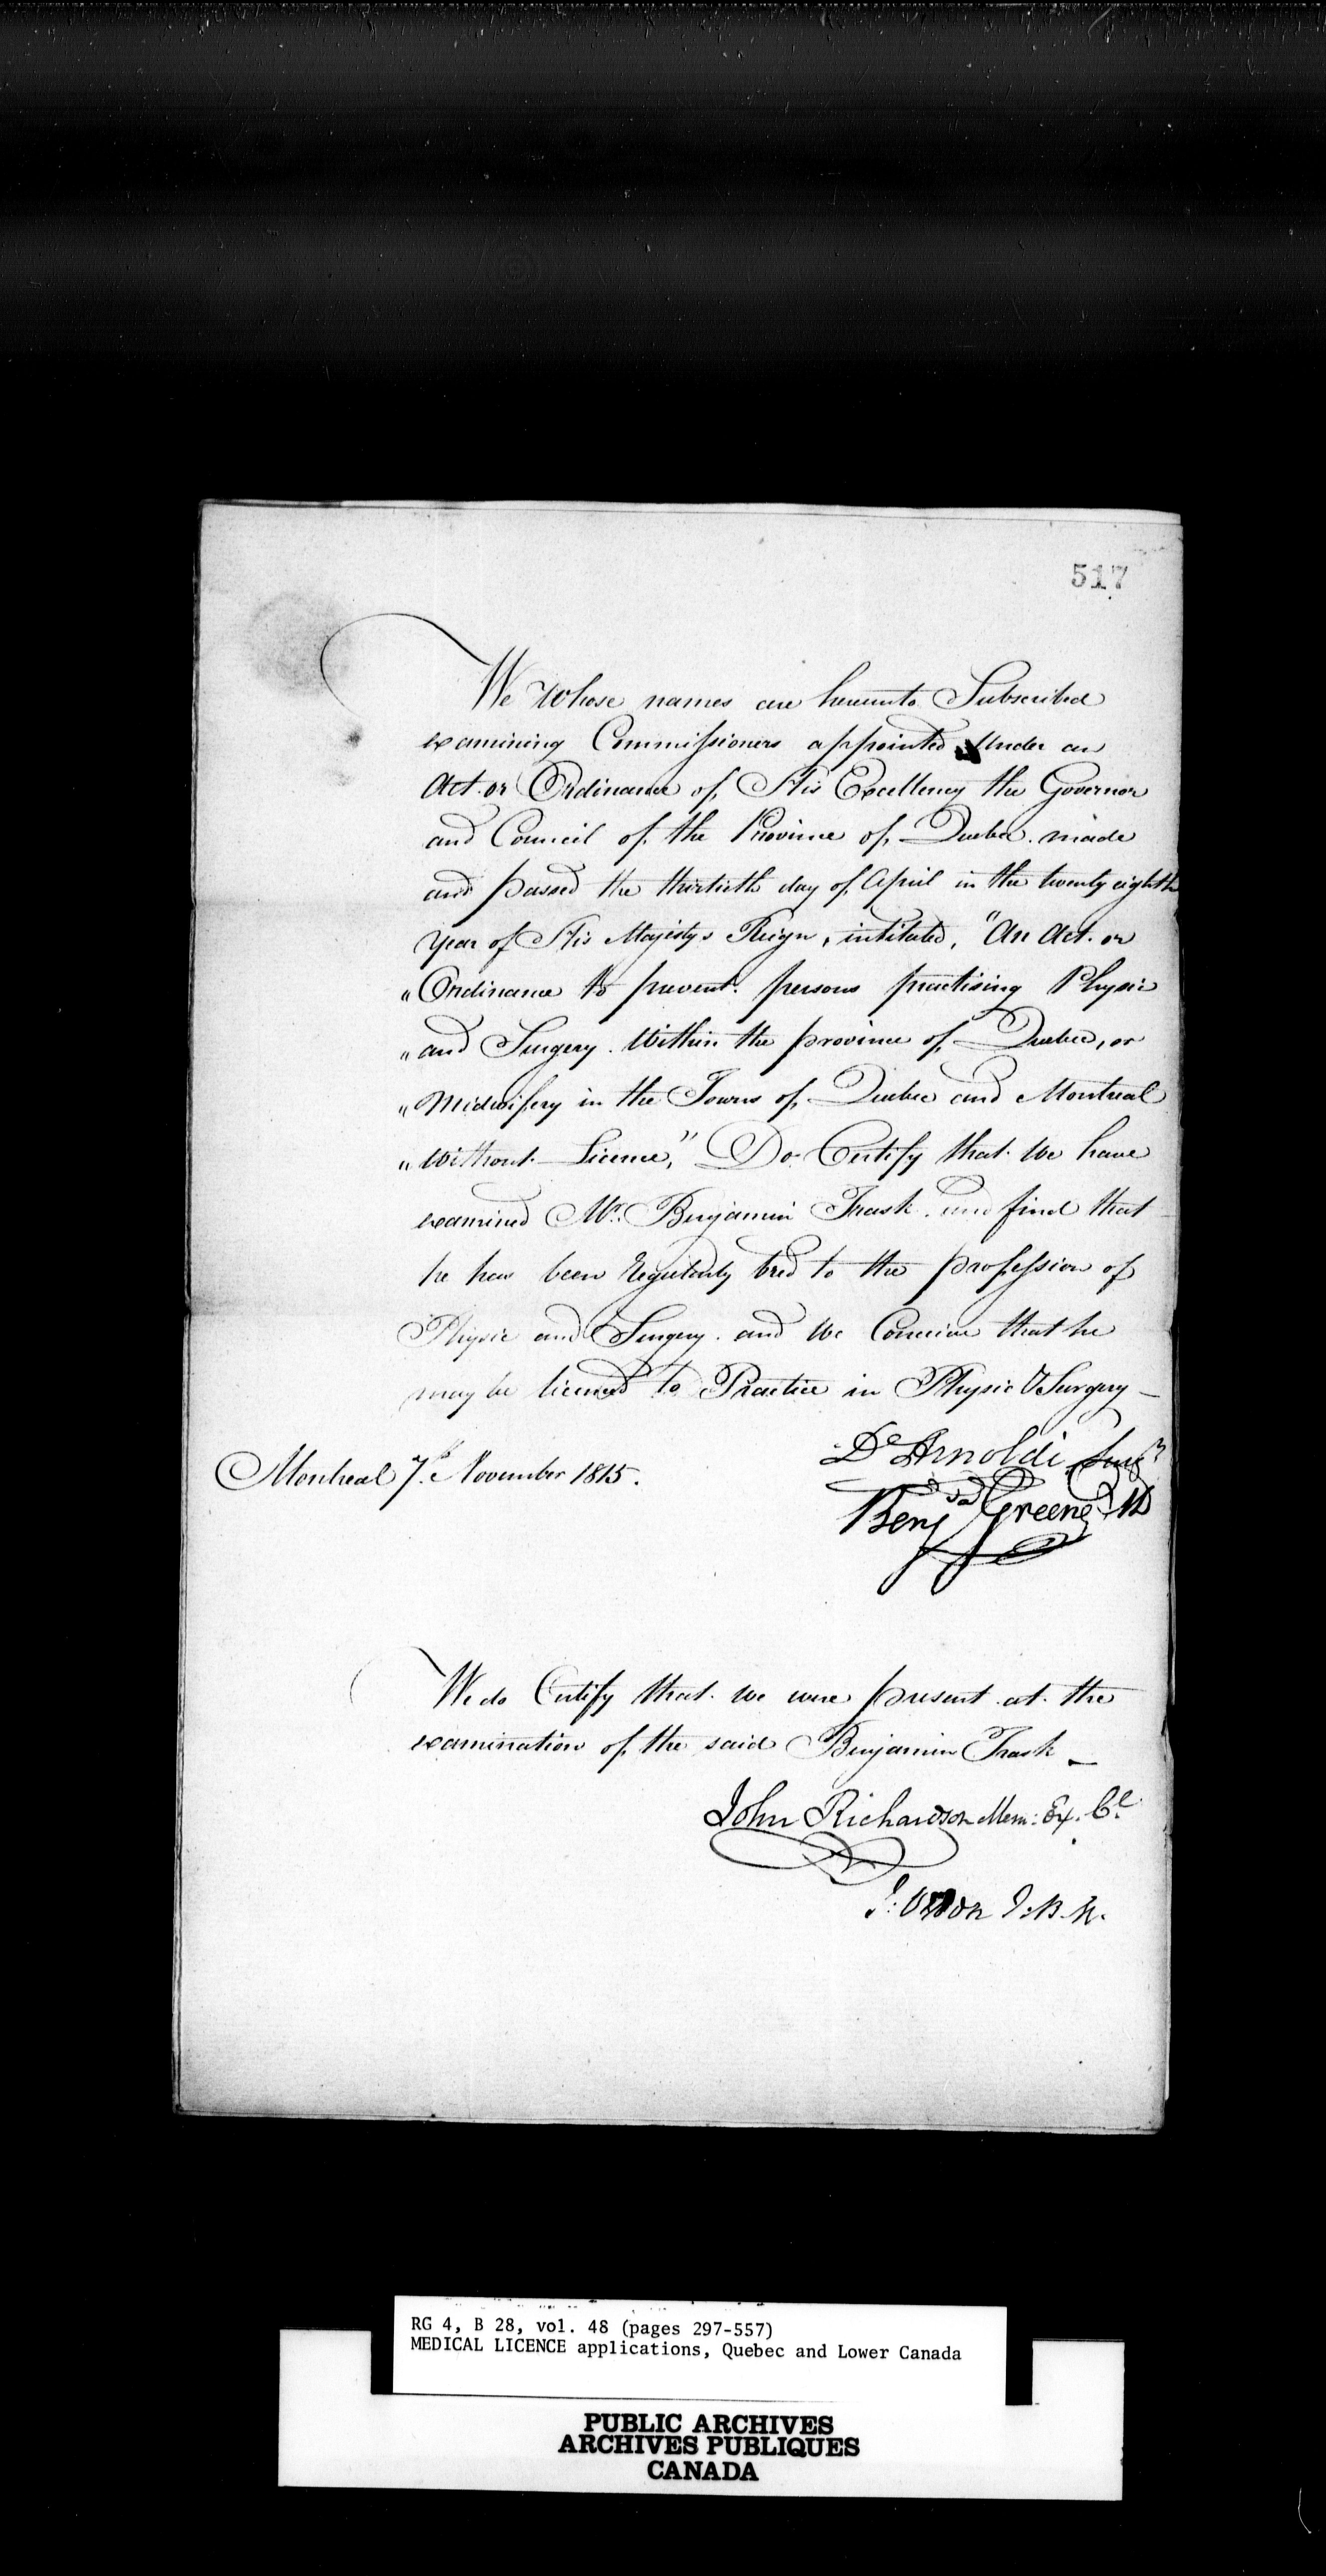 517
We Whose names are hereunto Subscribed
examining Commissioners appointed Under an
Act or Ordinance of His Excellency the Governor
and Council of the Province of Quebec made
and passed the thirtieth day of April in the twenty eighth
Year of His Majestys Reign, intituled, "An Act or
"Ordinance to prevent persons practising Physic
"and Surgery Within the province of Quebec, or
"Midwifery in the Towns of Quebec and Montreal
"Without Licence," Do Certify that We have
examined Mr. Benjamin Trask and find that
he has been Regularly bred to the profession of
Physic and Surgery and We Conceive that he
may be licenced to Practice in Physic & Surgery —
Dl Arnoldi
Montreal 7th November 1815.
Benj Greene MD
We do Certify that we were present at the
examination of the said Benjamin Trask —
John Richardson Mem: Ex. Cl.
J: J.B.R.
RG 4, B 28, vol. 48 (pages 297-557)
MEDICAL LICENCE applications, Quebec and Lower Canada
PUBLIC ARCHIVES
ARCHIVES PUBLIQUES
CANADA